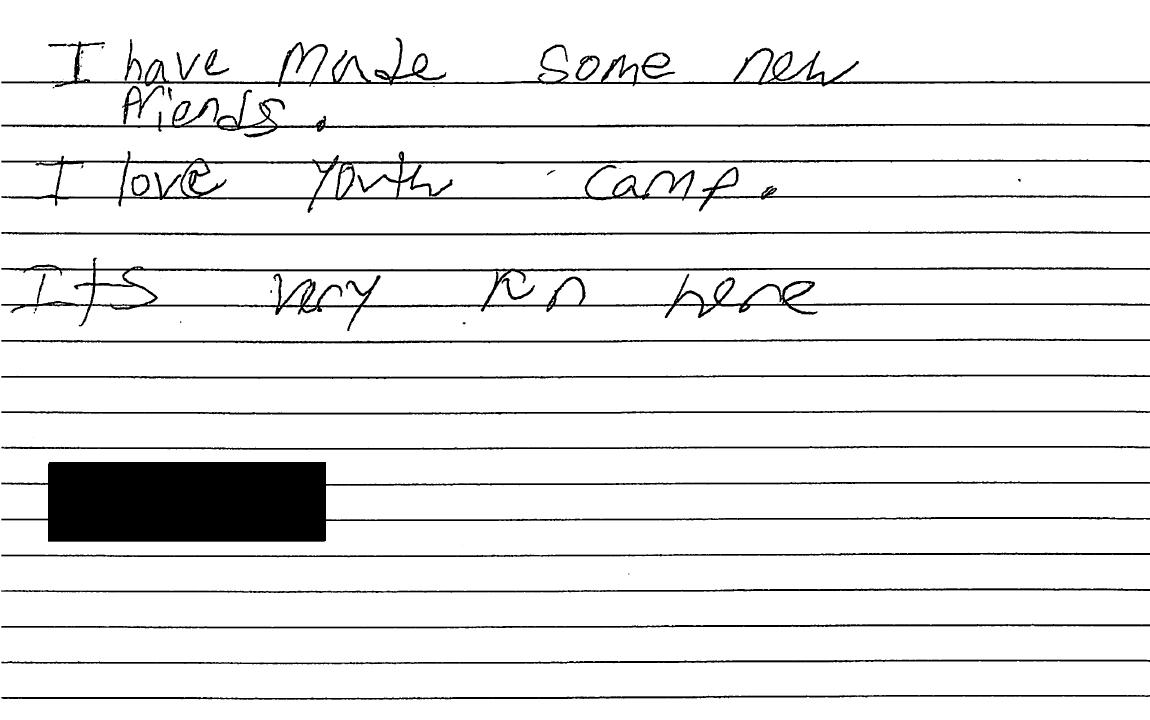 I have made some new
friends.
I love youth camp.
Its very fun here